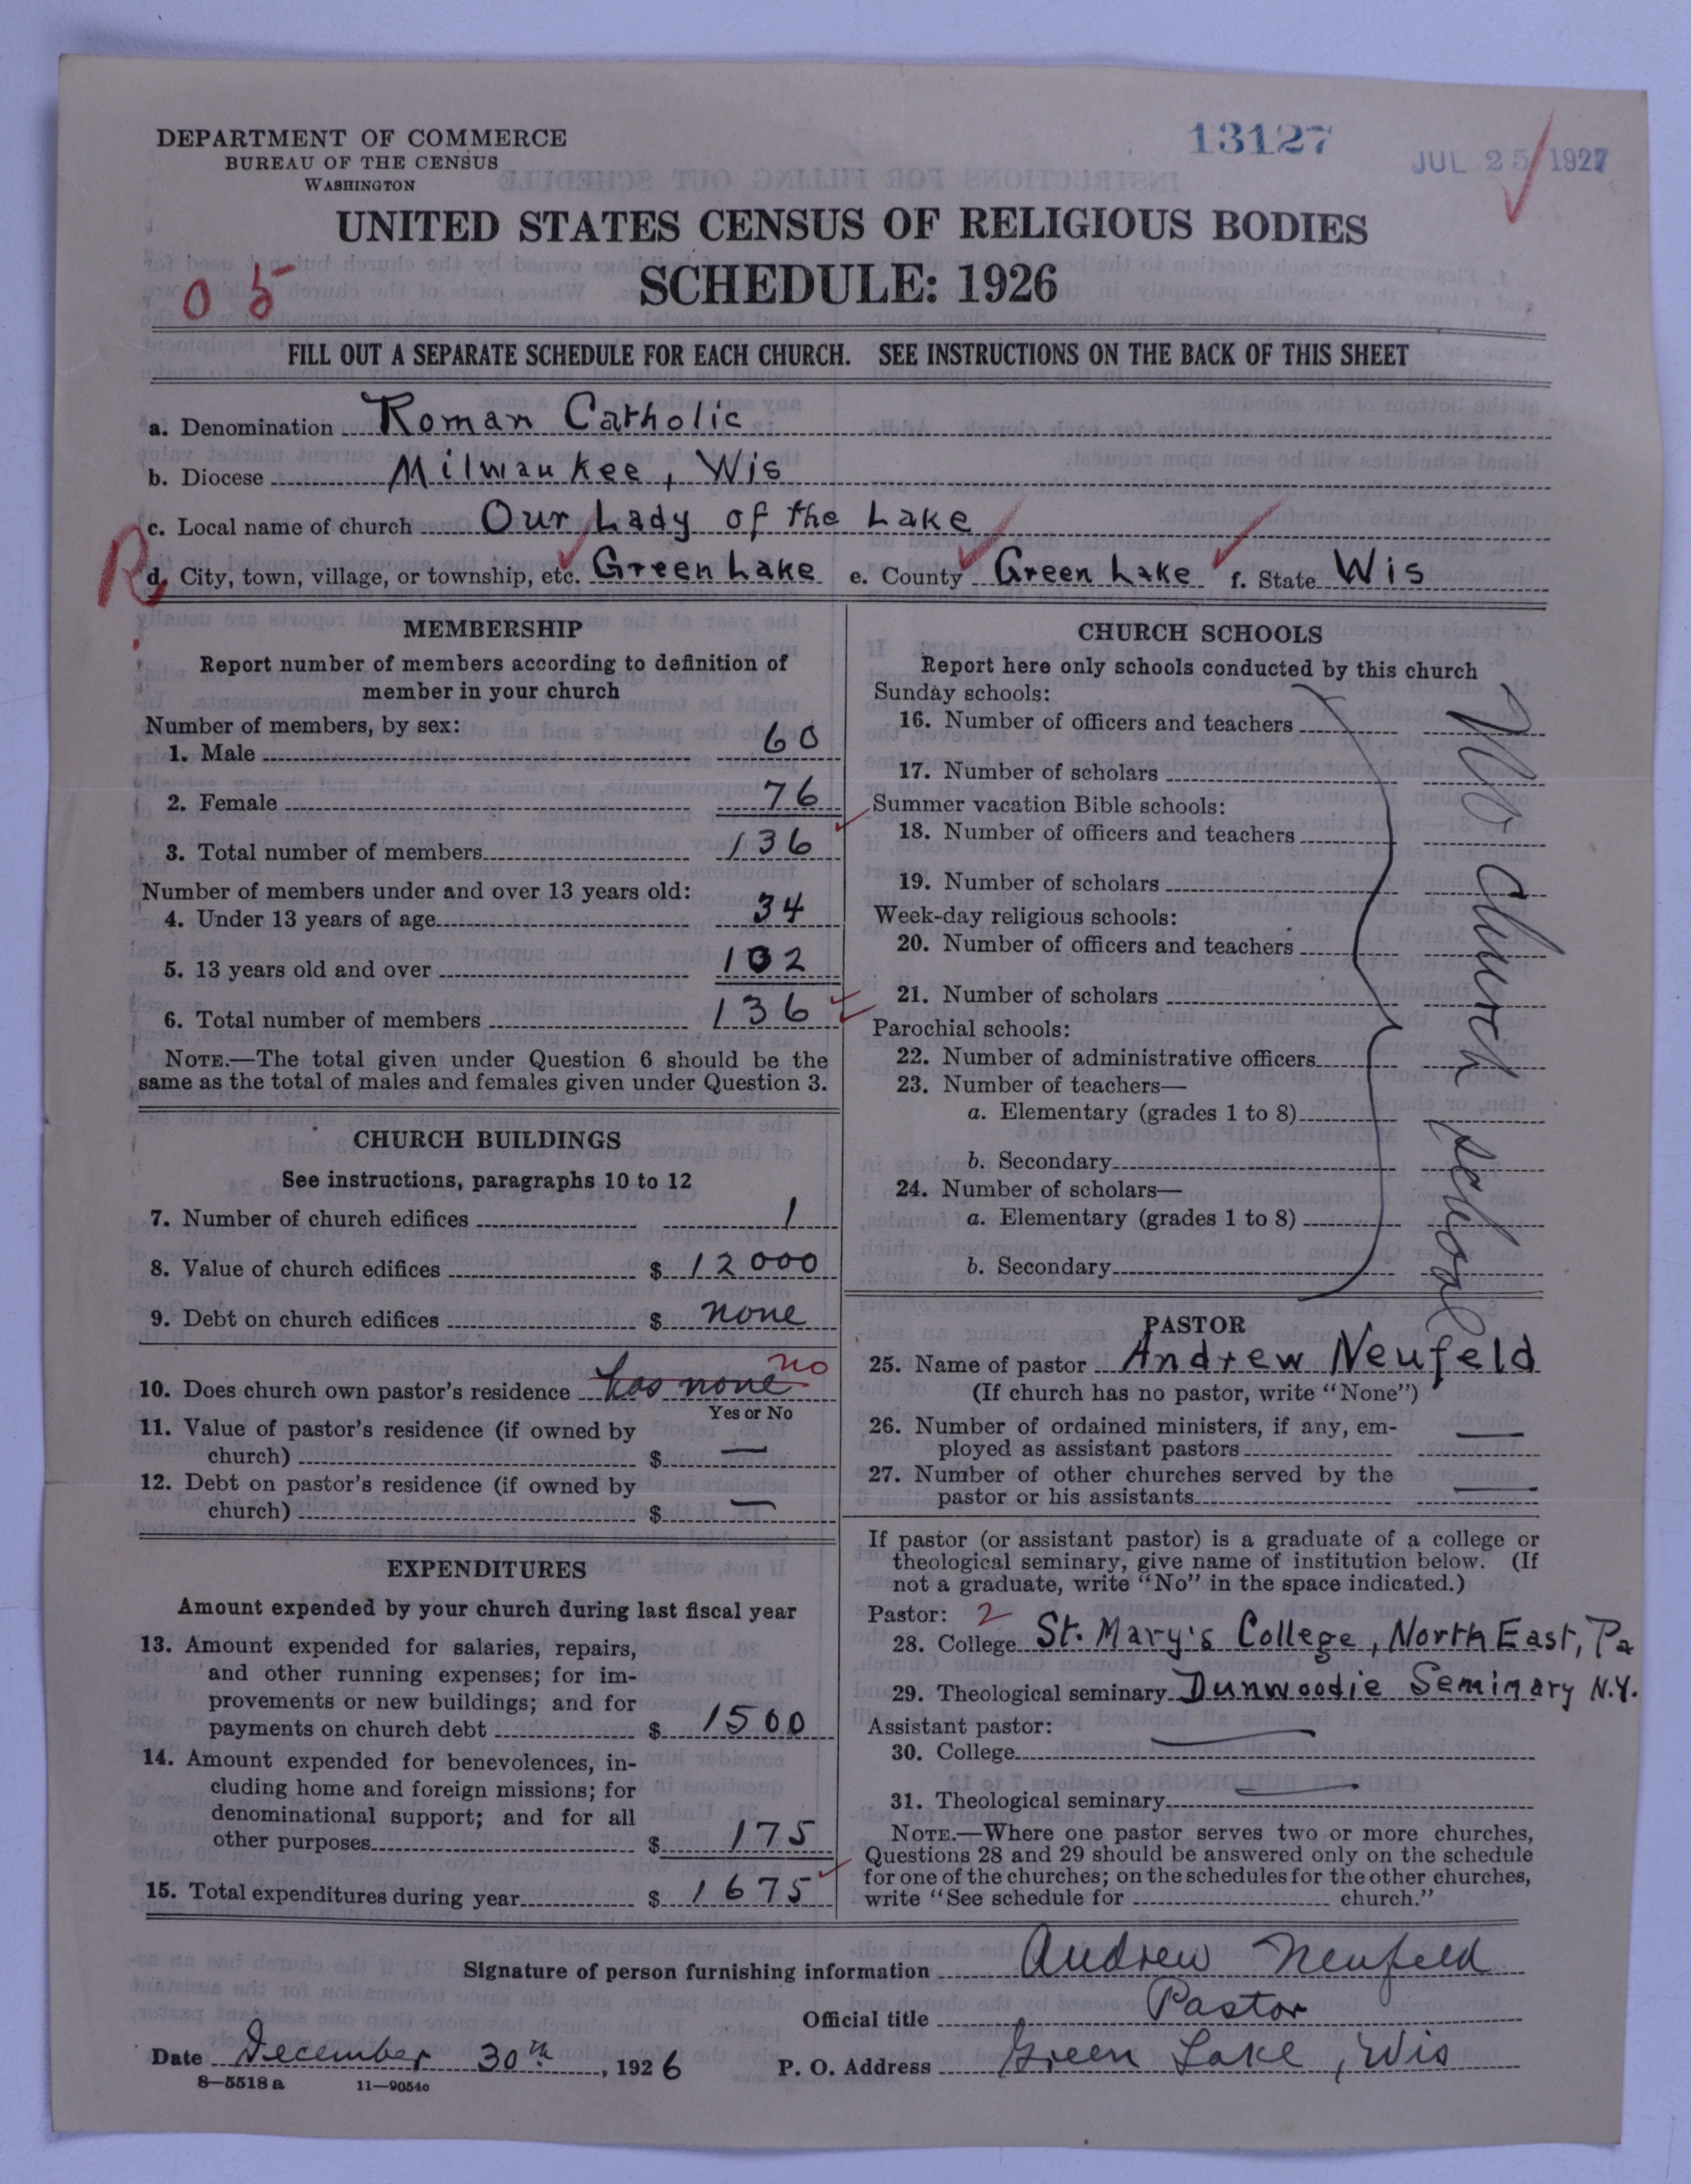 DEPARTMENT OF COMMERCE
BUREAU OF THE CENSUS
WASHINGTON
13127
JUL 25 1927
UNITED STATES CENSUS OF RELIGIOUS BODIES
SCHEDULE: 1926
05
FILL OUT A SEPARATE SCHEDULE FOR EACH CHURCH. SEE INSTRUCTIONS ON THE BACK OF THIS SHEET
a. Denomination Roman Catholic
b. Diocese Milwaukee, Wis
c. Local name of church Our Lady of the Lake
R
d. City, town, village, or township, etc. Green Lake e. County Green Lake f. State Wis
MEMBERSHIP
Report number of members according to definition of
member in your church
Number of members, by sex:
1. Male 60
2. Female 76
3. Total number of members 136
Number of members under and over 13 years old:
4. Under 13 years of age 34
5. 13 years old and over 102
6. Total number of members 136
NOTE.—The total given under Question 6 should be the
same as the total of males and females given under Question 3.
CHURCH BUILDINGS
See instructions, paragraphs 10 to 12
7. Number of church edifices 1
8. Value of church edifices $ 12000
9. Debt on church edifices $ none
10. Does church own pastor's residence has none no
Yes or No
11. Value of pastor's residence (if owned by
church) $ —
12. Debt on pastor's residence (if owned by
church) $ —
EXPENDITURES
Amount expended by your church during last fiscal year
13. Amount expended for salaries, repairs,
and other running expenses; for im-
provements or new buildings; and for
payments on church debt $ 1500
14. Amount expended for benevolences, in-
cluding home and foreign missions; for
denominational support; and for all
other purposes $ 175
15. Total expenditures during year $ 1675
CHURCH SCHOOLS
Report here only schools conducted by this church
Sunday schools:
16. Number of officers and teachers
17. Number of scholars
Summer vacation Bible schools:
18. Number of officers and teachers
19. Number of scholars
Week-day religious schools:
20. Number of officers and teachers
21. Number of scholars
Parochial schools:
22. Number of administrative officers
23. Number of teachers—
a. Elementary (grades 1 to 8)
b. Secondary
24. Number of scholars—
a. Elementary (grades 1 to 8)
b. Secondary
No church school
PASTOR
25. Name of pastor Andrew Neufeld
(If church has no pastor, write "None")
26. Number of ordained ministers, if any, em-
ployed as assistant pastors —
27. Number of other churches served by the
pastor or his assistants —
If pastor (or assistant pastor) is a graduate of a college or
theological seminary, give name of institution below. (If
not a graduate, write "No" in the space indicated.)
Pastor: 2
28. College St. Mary's College, North East, Pa
29. Theological seminary Dunwoodie Seminary N.Y.
Assistant pastor:
30. College —
31. Theological seminary —
NOTE.—Where one pastor serves two or more churches,
Questions 28 and 29 should be answered only on the schedule
for one of the churches; on the schedules for the other churches,
write "See schedule for church."
Signature of person furnishing information Andrew Neufeld
Official title Pastor
Date December 30th, 1926 P. O. Address Green Lake, Wis
8—5518 a 11—9054c